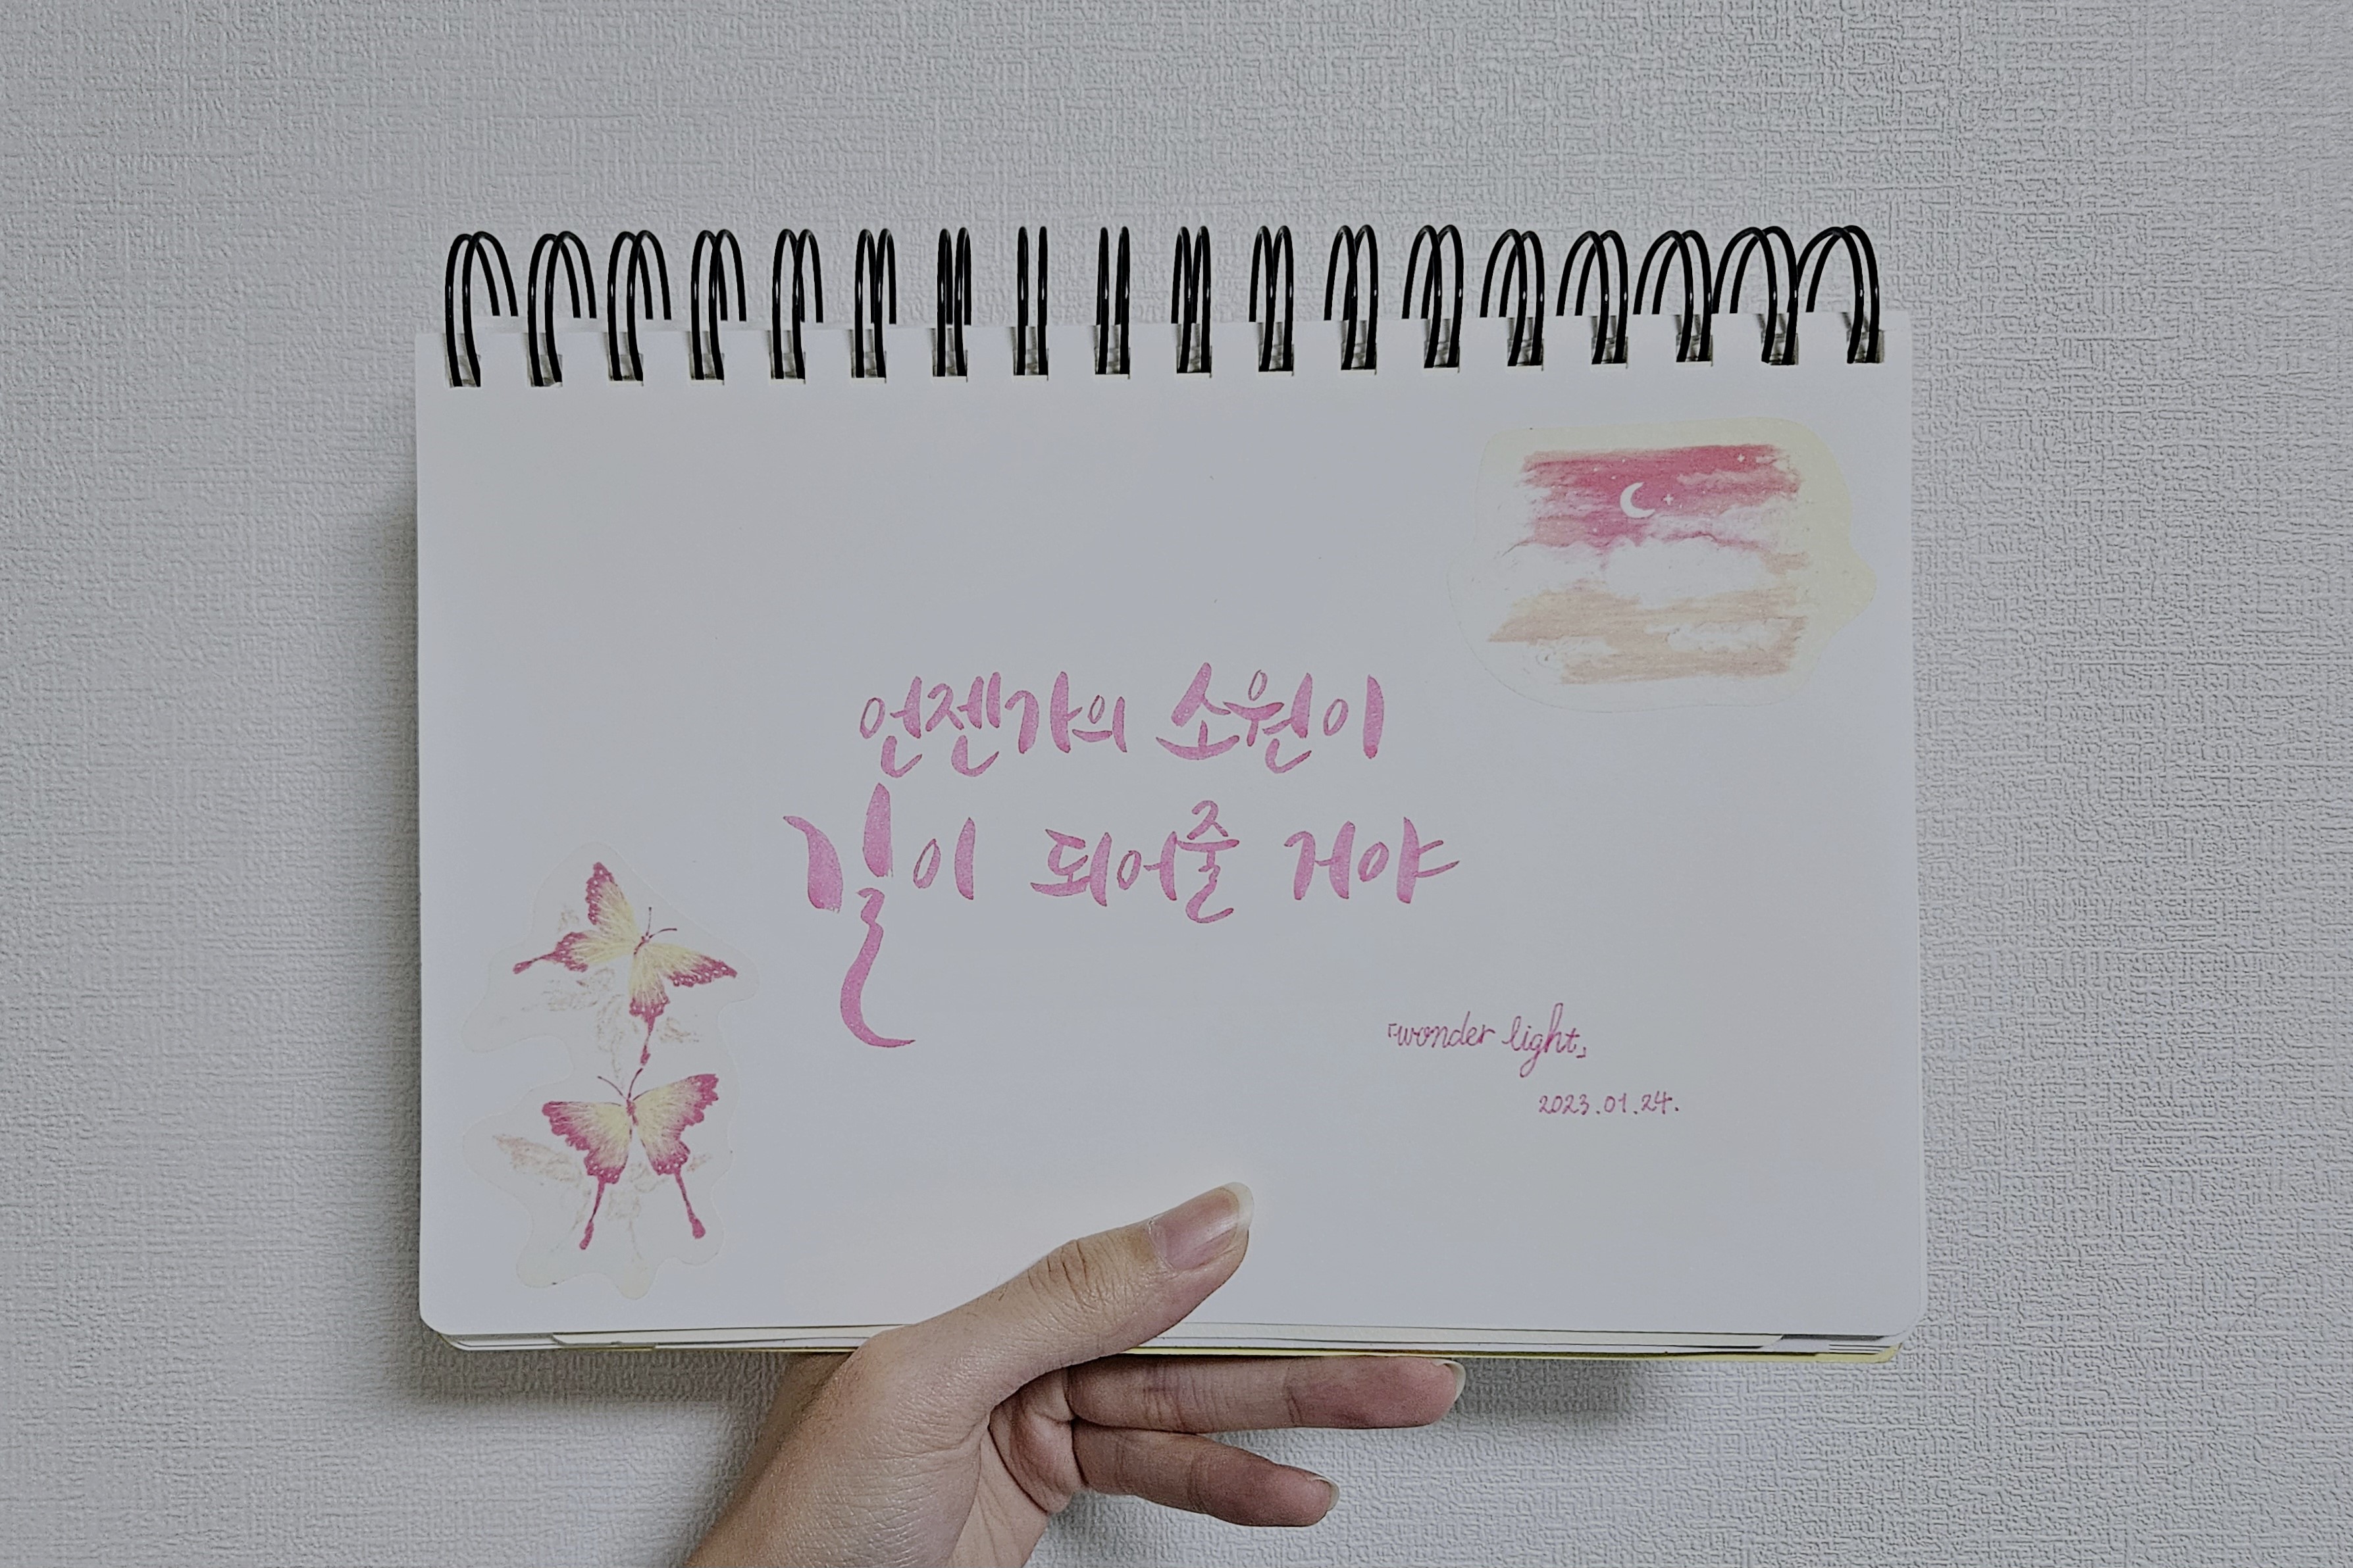 언젠가의 소원이
길이 되어줄 거야
「wonder light」
2023.01.24.